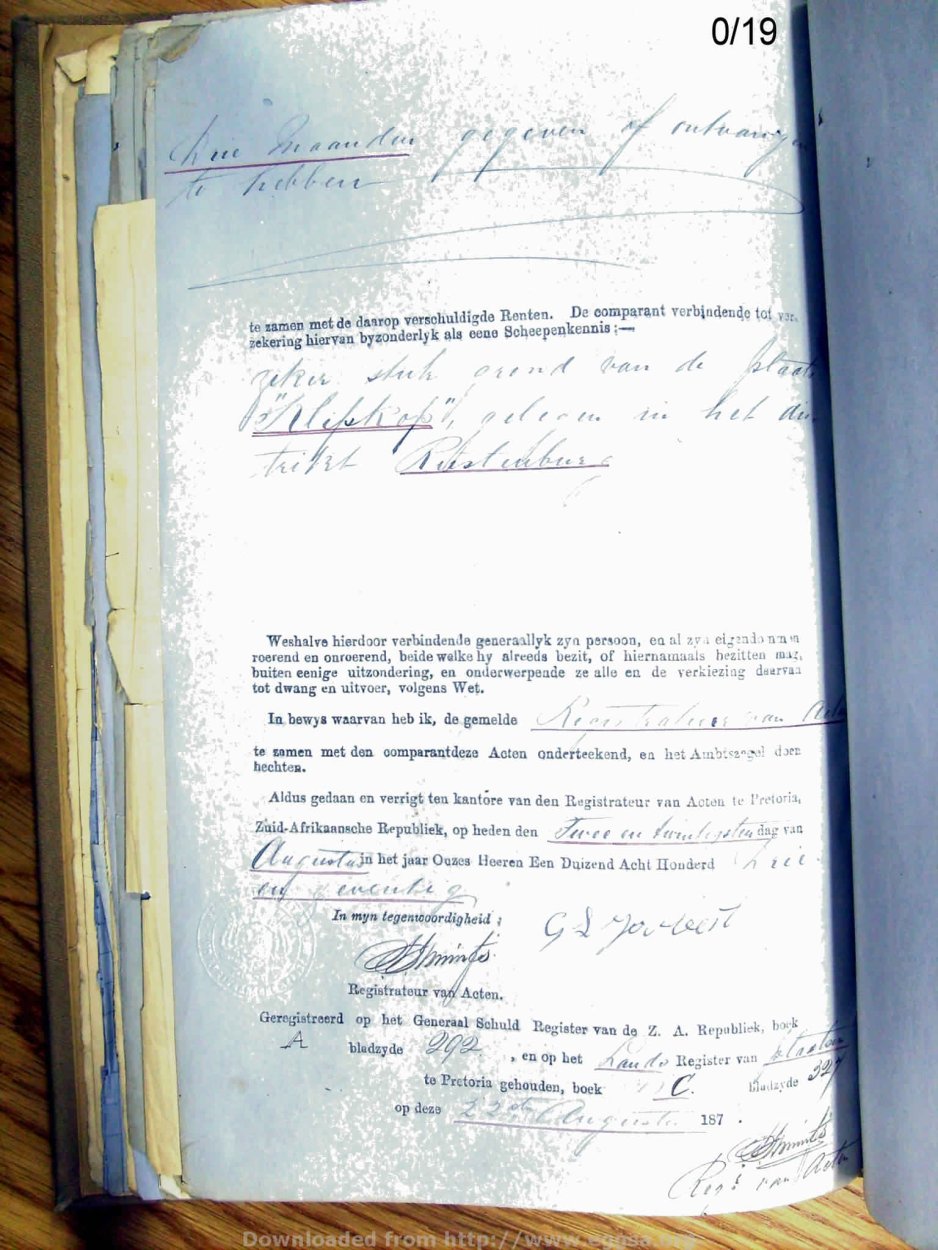 0/19
drie Maanden gegeven of ontvangen
te hebben
te zamen met de daarop verschuldigde Renten. De comparant verbindende tot ver-
zekering hiervan byzonderlyk als eene Scheepenkennis ;—
zeker stuk grond van de plaats
"Klipkop", gelegen in het dis
trikt Rustenburg
Weshalve hierdoor verbindende generaallyk zyn persoon, en al zyn eigendommen
roerend en onroerend, beide welke hy alreeds bezit, of hiernamaals bezitten mag,
buiten eenige uitzondering, en onderwerpende ze alle en de verkiezing daarvan
tot dwang en uitvoer, volgens Wet.
In bewys waarvan heb ik, de gemelde Registrateur van Acten
te zamen met den comparantdeze Acten onderteekend, en het Ambtszegel doen
hechten.
Aldus gedaan en verrigt ten kantore van den Registrateur van Acten te Pretoria,
Zuid-Afrikaansche Republiek, op heden den Twee en twintigsten dag van
Augustus in het jaar Onzes Heeren Een Duizend Acht Honderd Drie
en Zeventig
In myn tegenwoordigheid ;
Registrateur van Acten.
Geregistreerd op het Generaal Schuld Register van de Z. A. Republiek, boek
A bladzyde 292 , en op het Lands Register van plaatsen
te Pretoria gehouden, boek C. bladzyde 327
op deze 22ste Augustus 187 .
Regr van Acten
Downloaded from http://www.eggsa.org